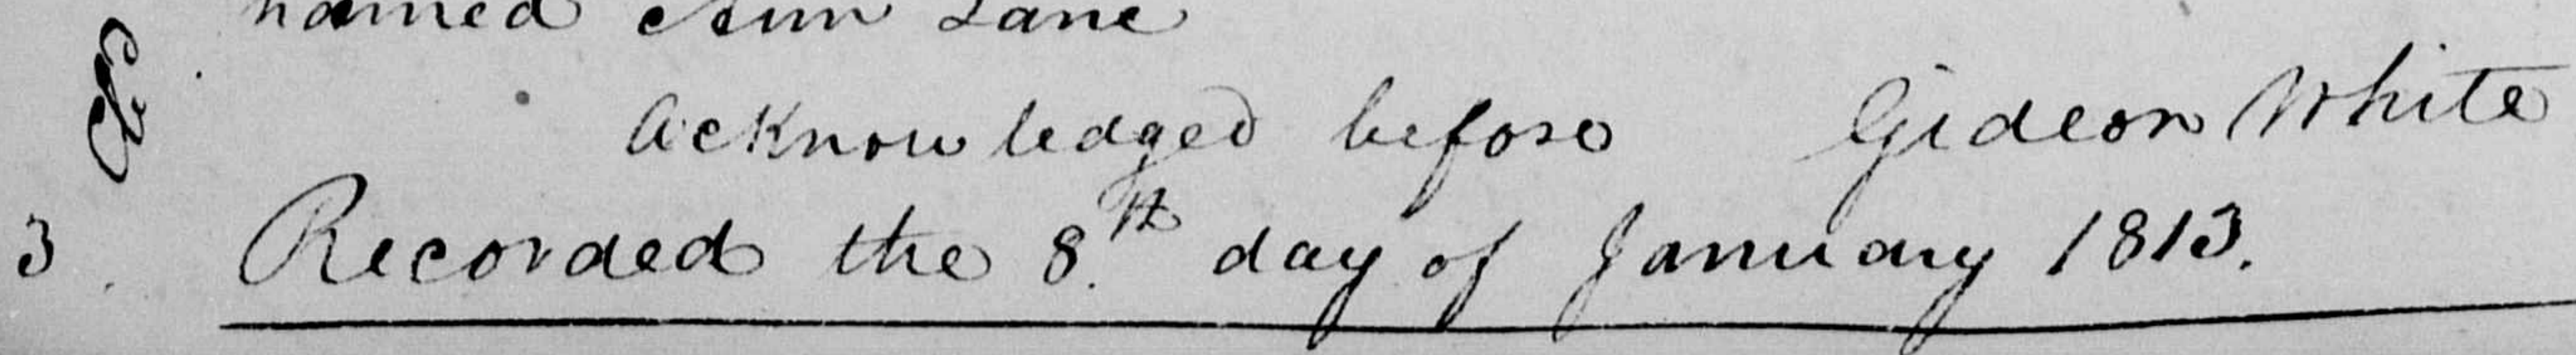 named Ann Lane
Acknowledged before Gideon White
3 Recorded the 8.th day of January 1813.